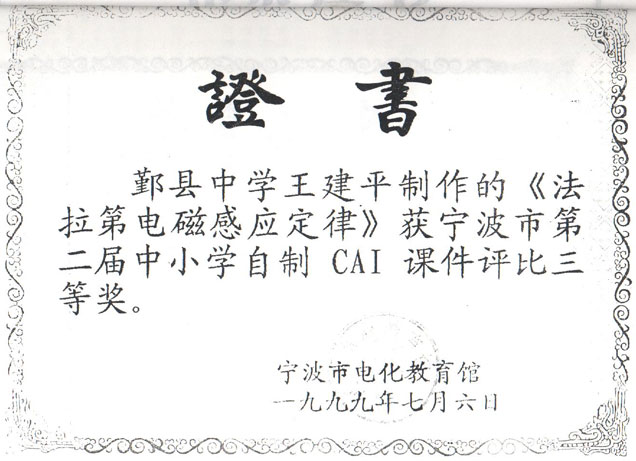 證書
鄞县中学王建平制作的《法
拉第电磁感应定律》获宁波市第
二届中小学自制 CAI 课件评比三
等奖。
宁波市电化教育馆
一九九九年七月六日